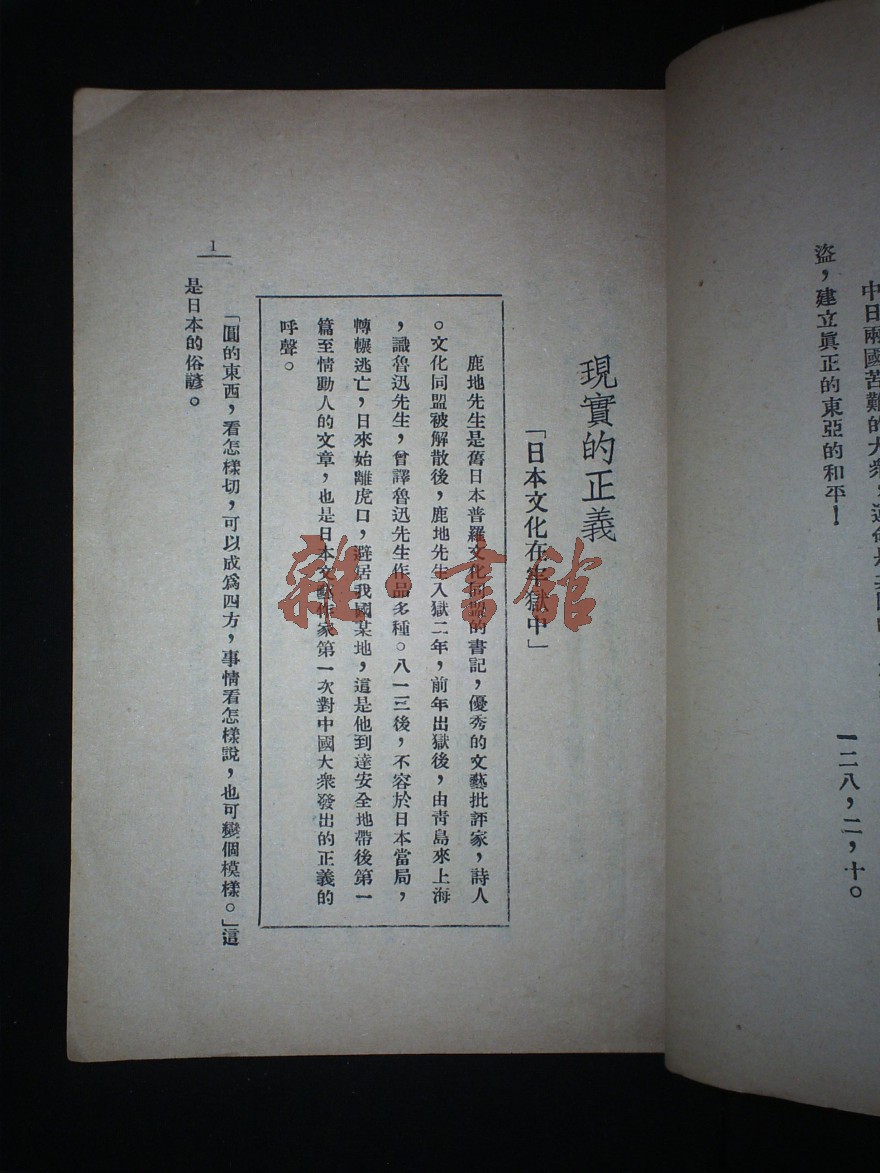 中日兩國苦難的大衆，
盜，建立眞正的東亞的和平！
一二八，二，十。
現實的正義
「日本文化在牢獄中」
鹿地先生是舊日本普羅文化同盟的書記，優秀的文藝批評家，詩人
。文化同盟被解散後，鹿地先生入獄二年，前年出獄後，由靑島來上海
，識魯迅先生，曾譯魯迅先生作品多種。八一三後，不容於日本當局，
轉輾逃亡，日來始離虎口，避居我國某地，這是他到達安全地帶後第一
篇至情動人的文章，也是日本文藝作家第一次對中國大衆發出的正義的
呼聲。
1
「圓的東西，看怎樣切，可以成爲四方，事情看怎樣說，也可變個模樣。」這
是日本的俗諺。
雜·書館